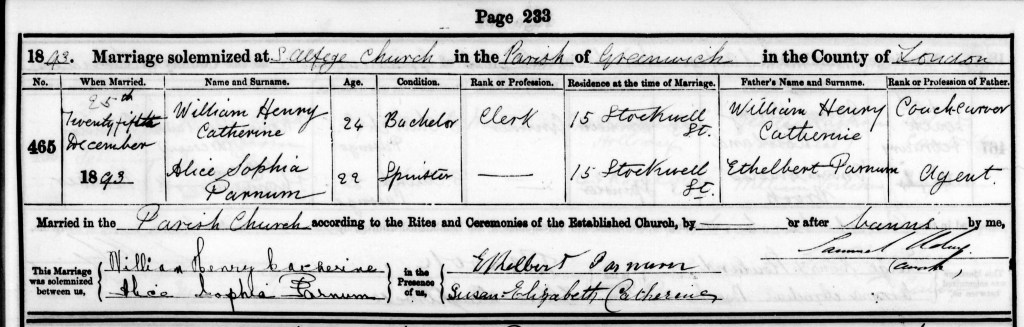 Page 233
1893. Marriage solemnized at S Alfege Church in the Parish of Greenwich in the County of London
No. When Married. Name and Surname. Age. Condition. Rank or Profession. Residence at the time of Marriage. Father's Name and Surname. Rank or Profession of Father.
465 25th Twenty fifth December 1893 William Henry Catherine 24 Bachelor Clerk 15 Stockwell St. William Henry Catherine Coachcarver
Alice Sophia Parnum 22 Spinster — 15 Stockwell St. Ethelbert Parnum Agent.
Married in the Parish Church according to the Rites and Ceremonies of the Established Church, by — or after banns by me,
Samuel
This Marriage was solemnized between us, William Henry Catherine in the Presence of us, Ethelbert Parnum
Alice Sophia Parnum Susan Elizabeth Catherine